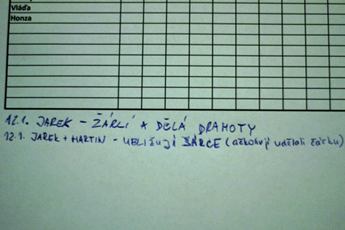 Vláďa
Honza
12.1. JAREK - ŽÁRLÍ A DĚLÁ DRAHOTY
12.1. JAREK + MARTIN - UBLIŽUJÍ ŠÁRCE (ačkoliv udělali čárku)